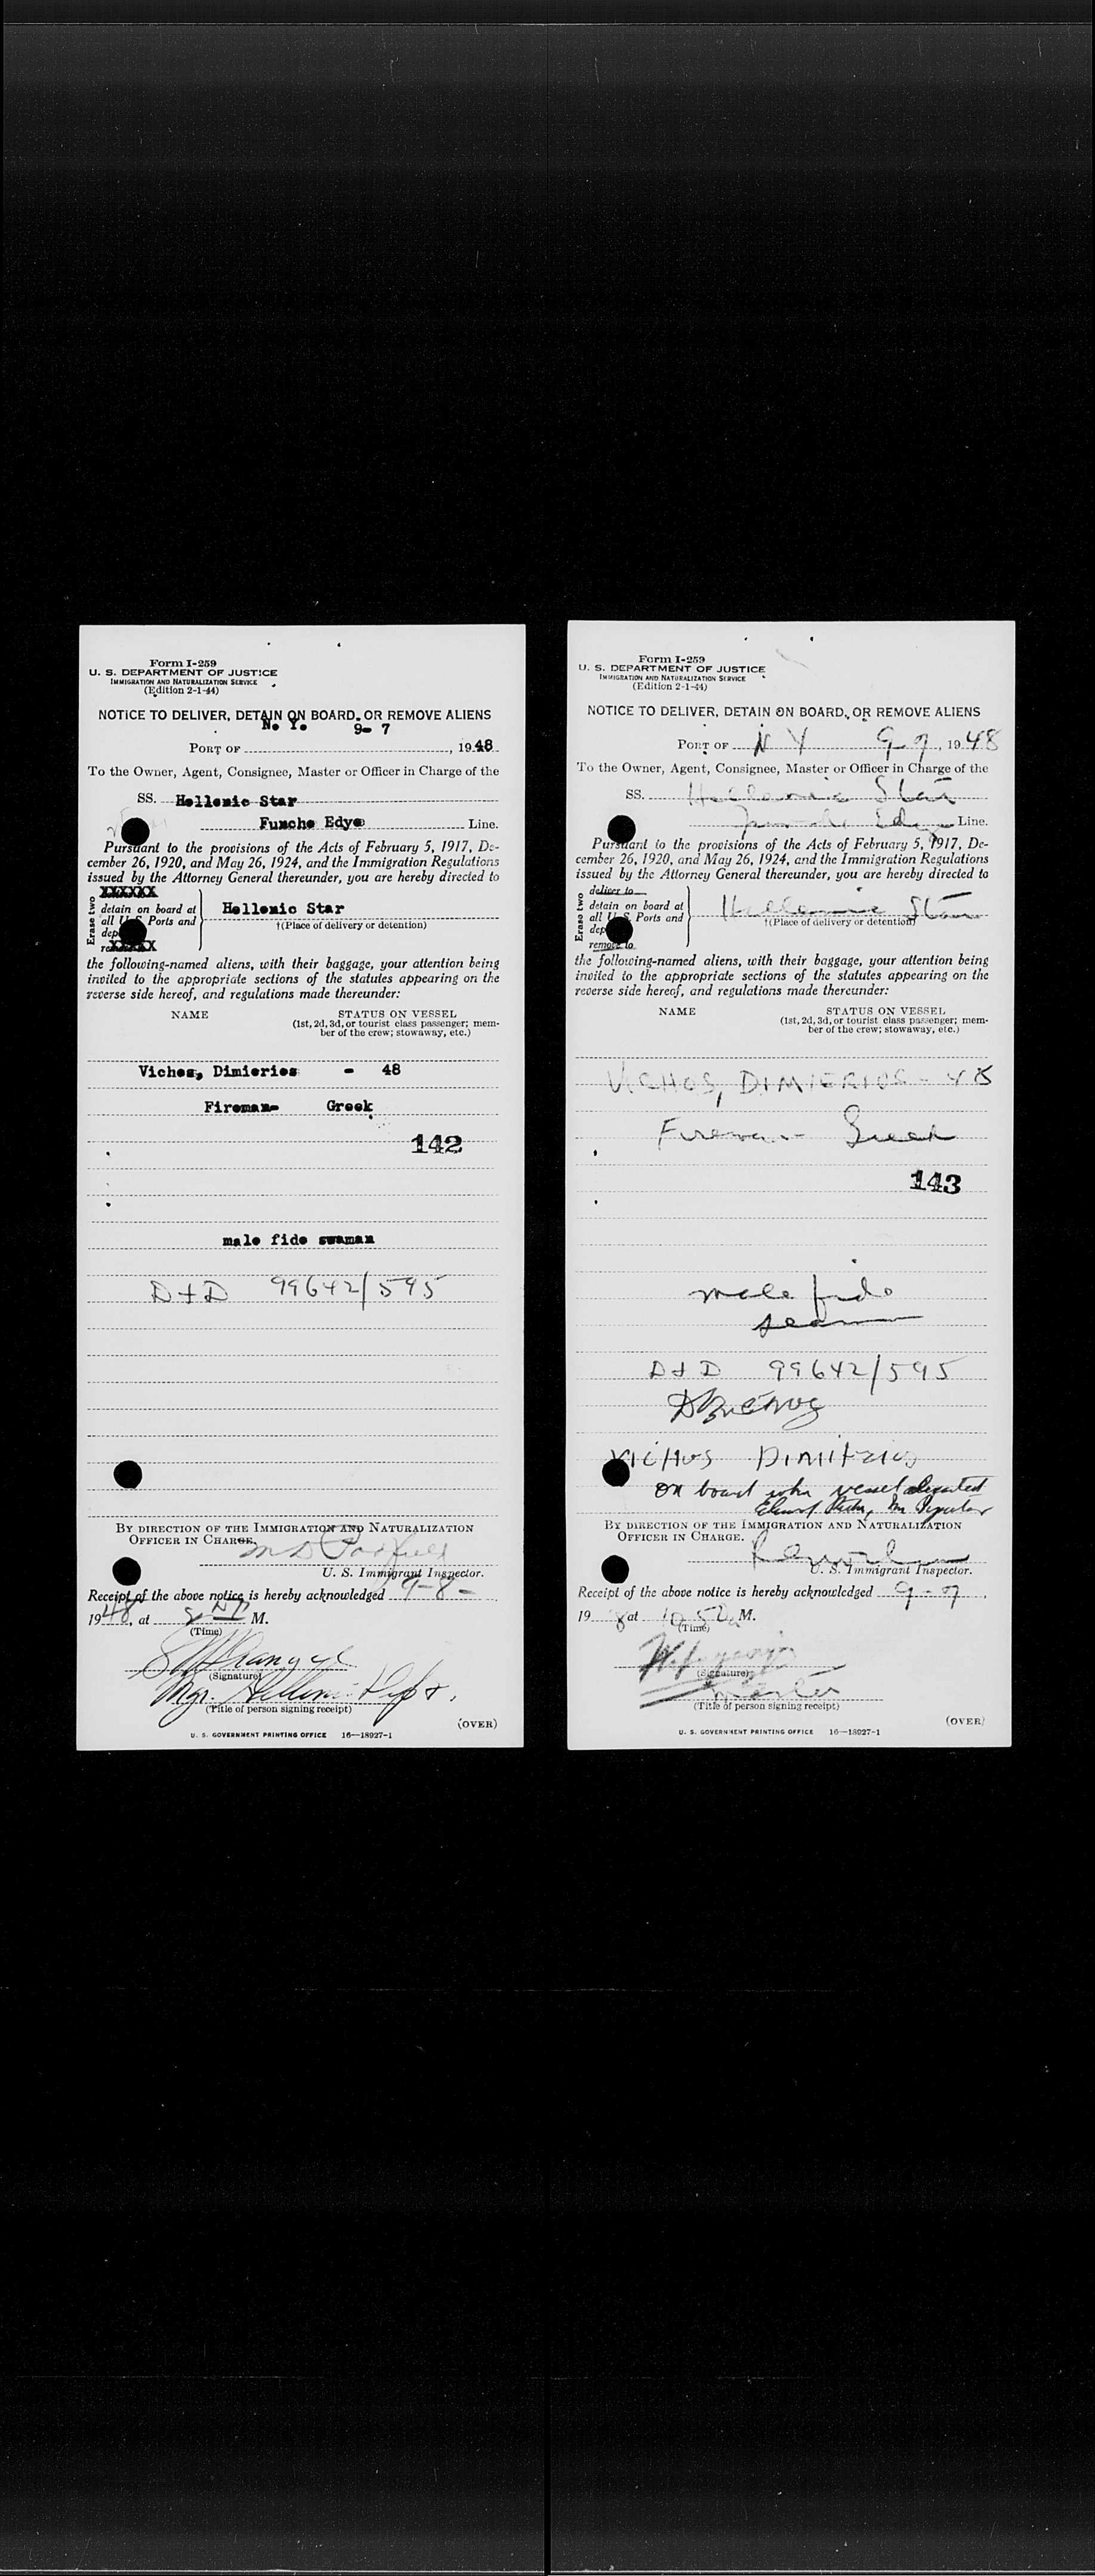 Form I-259
U. S. DEPARTMENT OF JUSTICE
IMMIGRATION AND NATURALIZATION SERVICE
(Edition 2-1-44)
NOTICE TO DELIVER, DETAIN ON BOARD, OR REMOVE ALIENS
N. Y. 9- 7
PORT OF , 1948
To the Owner, Agent, Consignee, Master or Officer in Charge of the
SS. Hellenic Star
Funche Edye Line.
Pursuant to the provisions of the Acts of February 5, 1917, De-
cember 26, 1920, and May 26, 1924, and the Immigration Regulations
issued by the Attorney General thereunder, you are hereby directed to
XXXXXX
Erase two
detain on board at
all U. S. Ports and
dep
Hellenic Star
†(Place of delivery or detention)
the following-named aliens, with their baggage, your attention being
invited to the appropriate sections of the statutes appearing on the
reverse side hereof, and regulations made thereunder:
NAME STATUS ON VESSEL
(1st, 2d, 3d, or tourist class passenger; mem-
ber of the crew; stowaway, etc.)
Vichos, Dimierios - 48
Fireman- Greek
142
male fide swaman
D+D 99642/595
BY DIRECTION OF THE IMMIGRATION AND NATURALIZATION
OFFICER IN CHARGE.
U. S. Immigrant Inspector.
Receipt of the above notice is hereby acknowledged 9-8-
1948, at M.
(Time)
(Signature)
Mgr.
(Title of person signing receipt)
(OVER)
U. S. GOVERNMENT PRINTING OFFICE 16—18927-1
Form I-259
U. S. DEPARTMENT OF JUSTICE
IMMIGRATION AND NATURALIZATION SERVICE
(Edition 2-1-44)
NOTICE TO DELIVER, DETAIN ON BOARD, OR REMOVE ALIENS
PORT OF N Y 9-7, 1948
To the Owner, Agent, Consignee, Master or Officer in Charge of the
SS. Hellenic Star
Edye Line.
Pursuant to the provisions of the Acts of February 5, 1917, De-
cember 26, 1920, and May 26, 1924, and the Immigration Regulations
issued by the Attorney General thereunder, you are hereby directed to
Erase two
deliver to
detain on board at
all U. S. Ports and
dep
remove to
Hellenic Star
†(Place of delivery or detention)
the following-named aliens, with their baggage, your attention being
invited to the appropriate sections of the statutes appearing on the
reverse side hereof, and regulations made thereunder:
NAME STATUS ON VESSEL
(1st, 2d, 3d, or tourist class passenger; mem-
ber of the crew; stowaway, etc.)
VICHOS, DIMIERIOS - 48
Fireman - Greek
143
male fide
seaman
D+D 99642/595
VICHOS DIMITRIOS
on board when vessel departed
BY DIRECTION OF THE IMMIGRATION AND NATURALIZATION
OFFICER IN CHARGE.
U. S. Immigrant Inspector.
Receipt of the above notice is hereby acknowledged 9-7,
19 8 at 10 50a M.
(Time)
(Signature)
Master
(Title of person signing receipt)
(OVER)
U. S. GOVERNMENT PRINTING OFFICE 16—18927-1